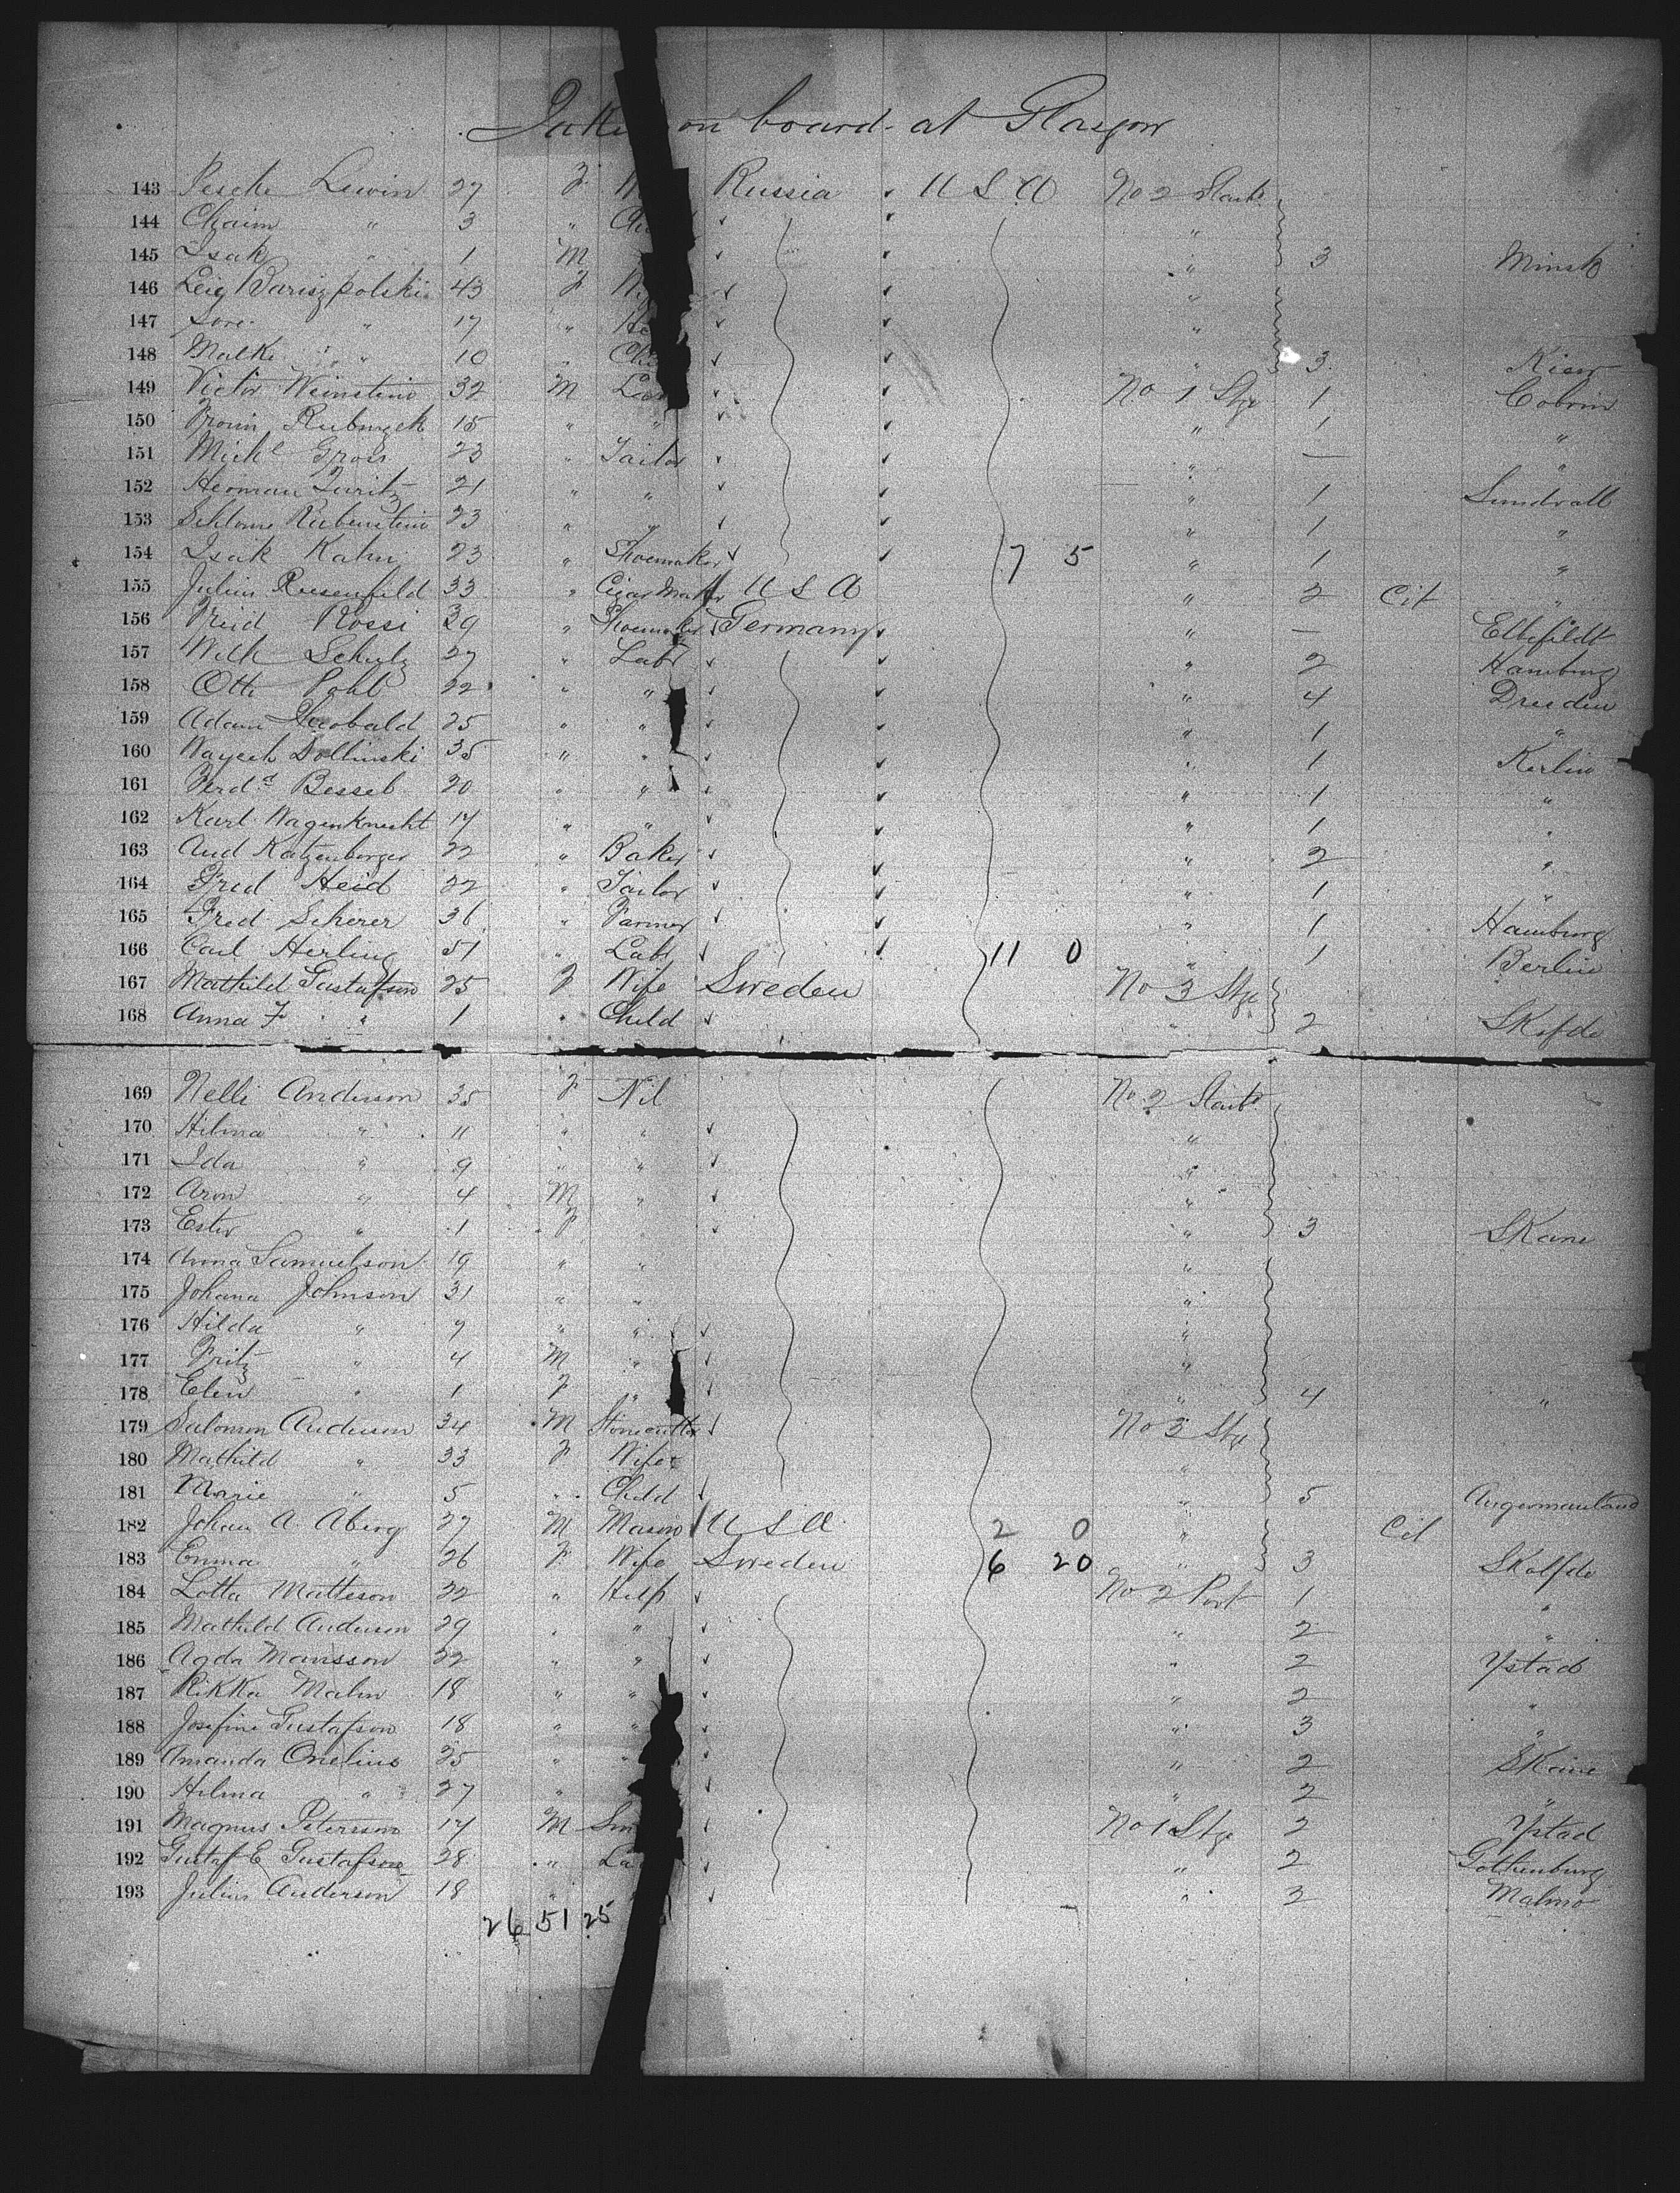 Taken on board at Glasgow
143 Pesche Lewin 27 F Russia USA No 2 Starb
144 Chaim " 3 " Ch
145 Isak " 1 M " 3 Minsk
146 Leig Bariszpolski 43 F W "
147 Sore " 17 " "
148 Malke " 10 " Chi " 3 Kiew
149 Victor Weinstein 32 M Lab No 1 Stge 1 Cobrin
150 Rubinzek 15 " " " 1 "
151 Michl Gross 23 " Tailor " — "
152 Herman Zuritz 21 " " " 1 Sundvall
153 Schlome Rubenstein 23 " " " 1 "
154 Isak Kahn 23 " Shoemaker 7 5 " 1 "
155 Julius Rosenfeld 33 " Cigar Maker USA " 2 Cit "
156 Fried Rossi 39 " Shoemaker Germany " — Elbefildt
157 Wilh Schulz 27 " Labr " 2 Hamburg
158 Otto Pohl 22 " " " 4 Dresden
159 Adam Theobald 25 " " " 1 "
160 Wayech Dollinski 35 " " " 1 Kerlin
161 Ferdd Bessel 20 " " " 1 "
162 Karl Wagenknecht 17 " " " 1 "
163 Aud Katzenberger 22 " Baker " 2 "
164 Fred Heid 22 " Tailor " 1 "
165 Fred Scherer 36 " Farmer " 1 Hamburg
166 Carl Herling 51 " Labr 11 0 " 1 Berlin
167 Mathild Gustafson 25 F Wife Sweden No 3 Stge
168 Anna F " 1 " Child " 2 Skofde
169 Nelli Anderson 35 F Nil No 2 Starb
170 Hilma " 11 " " "
171 Ida " 9 " " "
172 Aron " 4 M " "
173 Ester " 1 F " " 3 Skane
174 Anna Samuelson 19 " " "
175 Johana Johnson 31 " " "
176 Hilda " 7 " " "
177 Fritz " 4 M " "
178 Elin " 1 F " " 4 "
179 Salomon Anderson 34 M Stonecutter No 3 Stge
180 Mathild " 33 F Wife "
181 Marie " 5 " Child " 5 Angermanland
182 Johan A Aberg 27 M Mason USA 2 0 " Cit
183 Emma " 26 F Wife Sweden 6 20 " 3 Skolfde
184 Lotta Matteson 22 " Help No 2 Port 1 "
185 Mathild Anderson 29 " " " 2 "
186 Agda Mansson 22 " " " 2 Ystad
187 Rikka Malm 18 " " " 2 "
188 Josefine Gustafson 18 " " " 3 "
189 Amanda Onelius 25 " " " 2 Skane
190 Hilma " 27 " " 2 "
191 Magnus Peterson 17 M Sm No 1 Stge 2 Ystad
192 Gustaf E Gustafson 28 " La " 2 Gothenburg
193 Julius Anderson 18 " " 3 Malmo
26 51 25